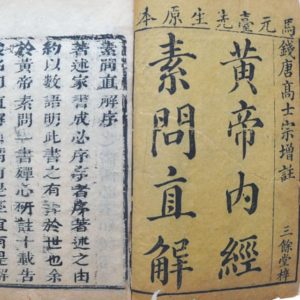 馬元臺先生原本
錢唐高士宗增註
黃帝內經
素問直解
三餘堂梓
素問直解序
著述家書成必序序者序著述之由
約以數語明此書之有裨於世也余
於黃帝素問一書殫心研註十載告